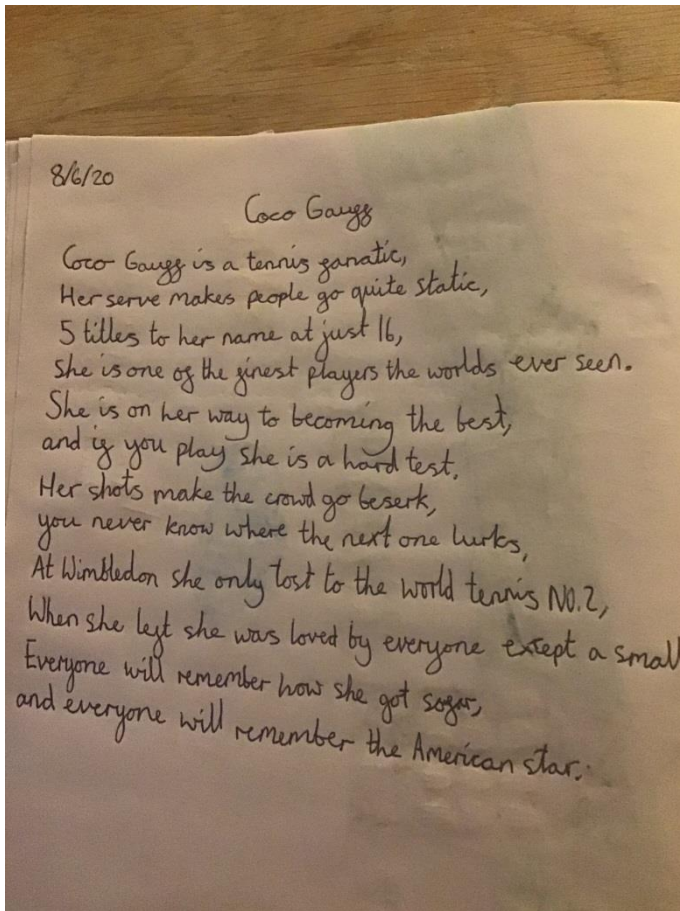 8/6/20
Coco Gauff
Coco Gauff is a tennis fanatic,
Her serve makes people go quite static,
5 titles to her name at just 16,
She is one of the finest players the worlds ever seen.
She is on her way to becoming the best,
and if you play she is a hard test.
Her shots make the crowd go beserk,
you never know where the next one lurks,
At Wimbledon she only lost to the world tennis NO.2,
When she left she was loved by everyone exept a small
Everyone will remember how she got sofar,
and everyone will remember the American star.